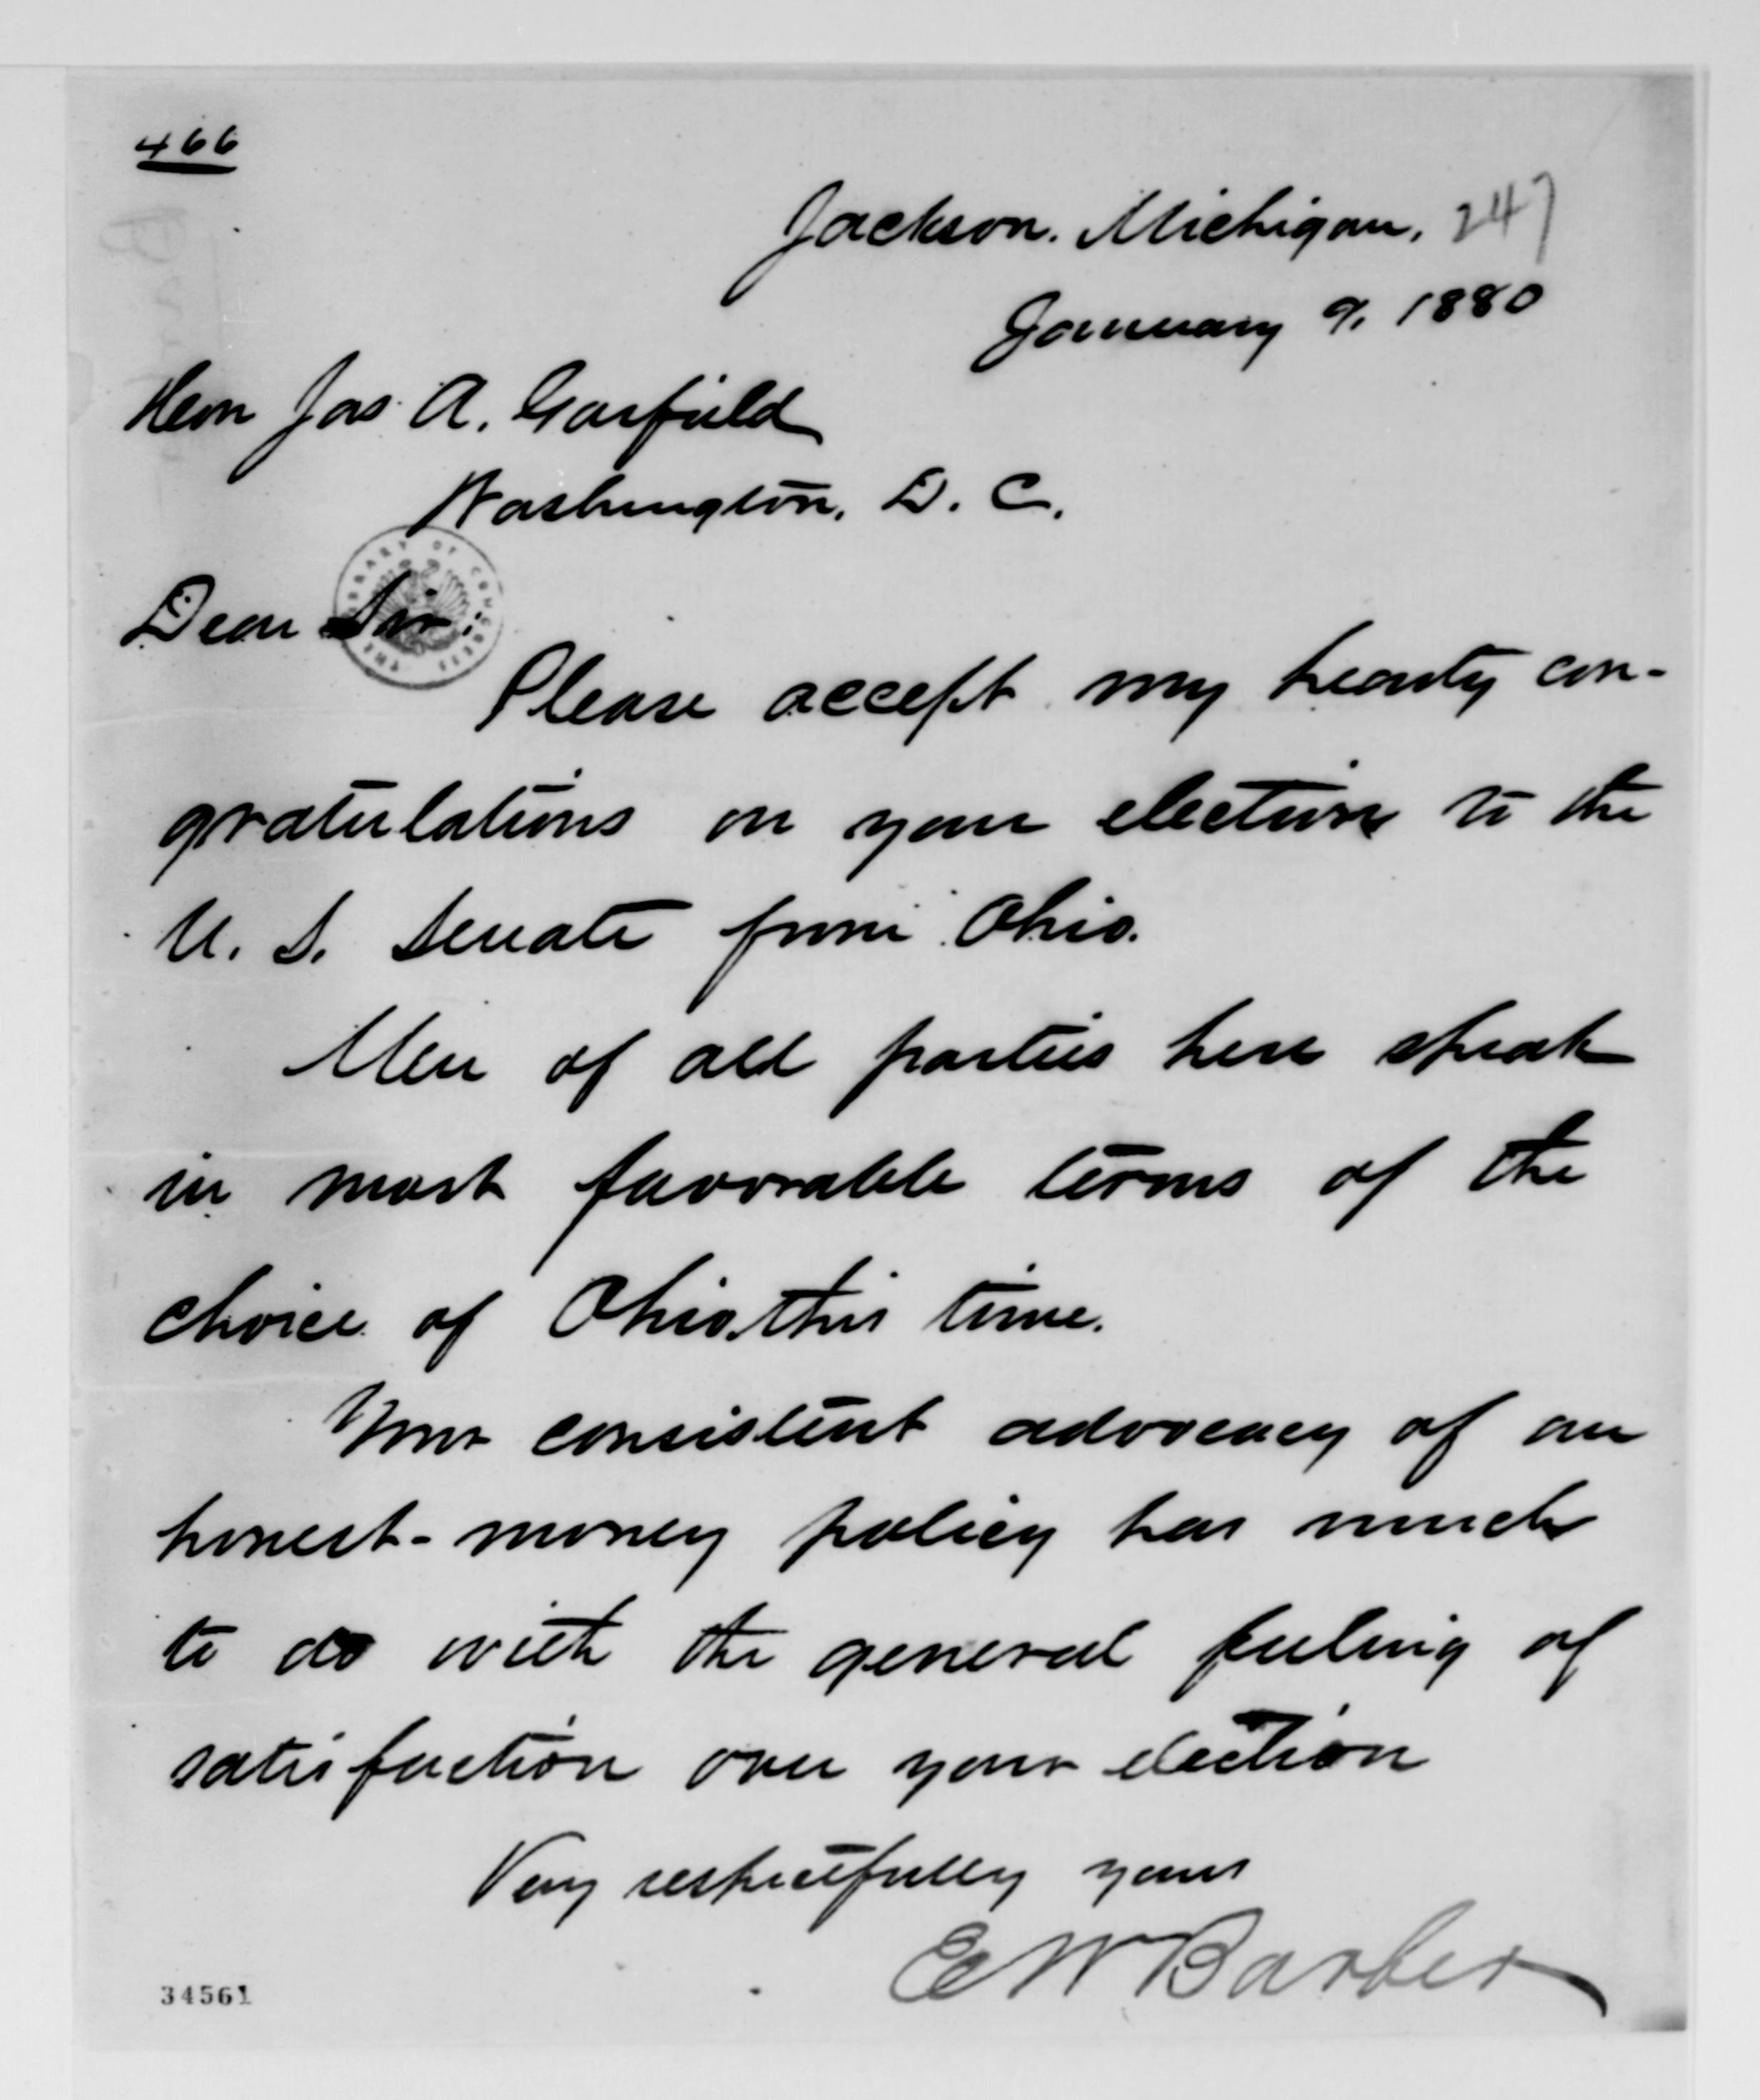 466
Jackson. Michigan. 247
January 9, 1880
Hon Jas. A. Garfield
Washington, D. C.
Dear Sir:
THE LIBRARY OF CONGRESS
Please accept my hearty con-
gratulations on your election to the
U. S. Senate from Ohio.
Men of all parties here speak
in most favorable terms of the
choice of Ohio this time.
Your consistent advocacy of an
honest-money policy has much
to do with the general feeling of
satisfaction over your election
Very respectfully yours
E W Barber
34561